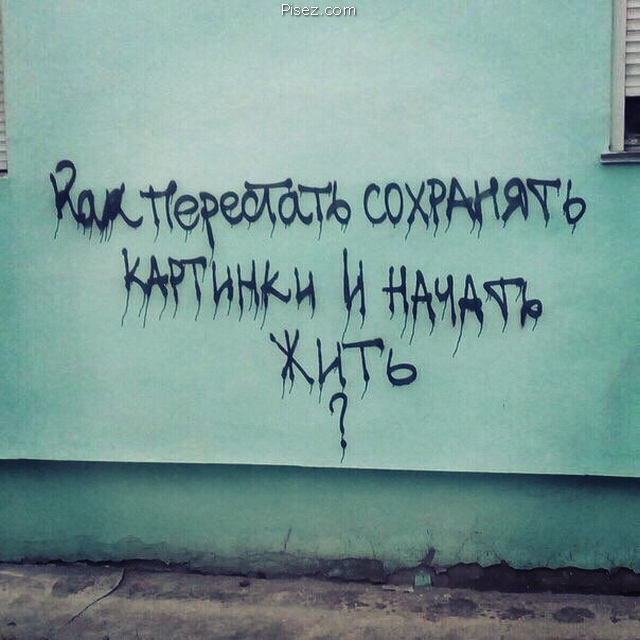 Pisez.com
Как перестать СОХРАНЯТЬ
КАРТИНКИ И НАЧАТЬ
ЖИТЬ
?